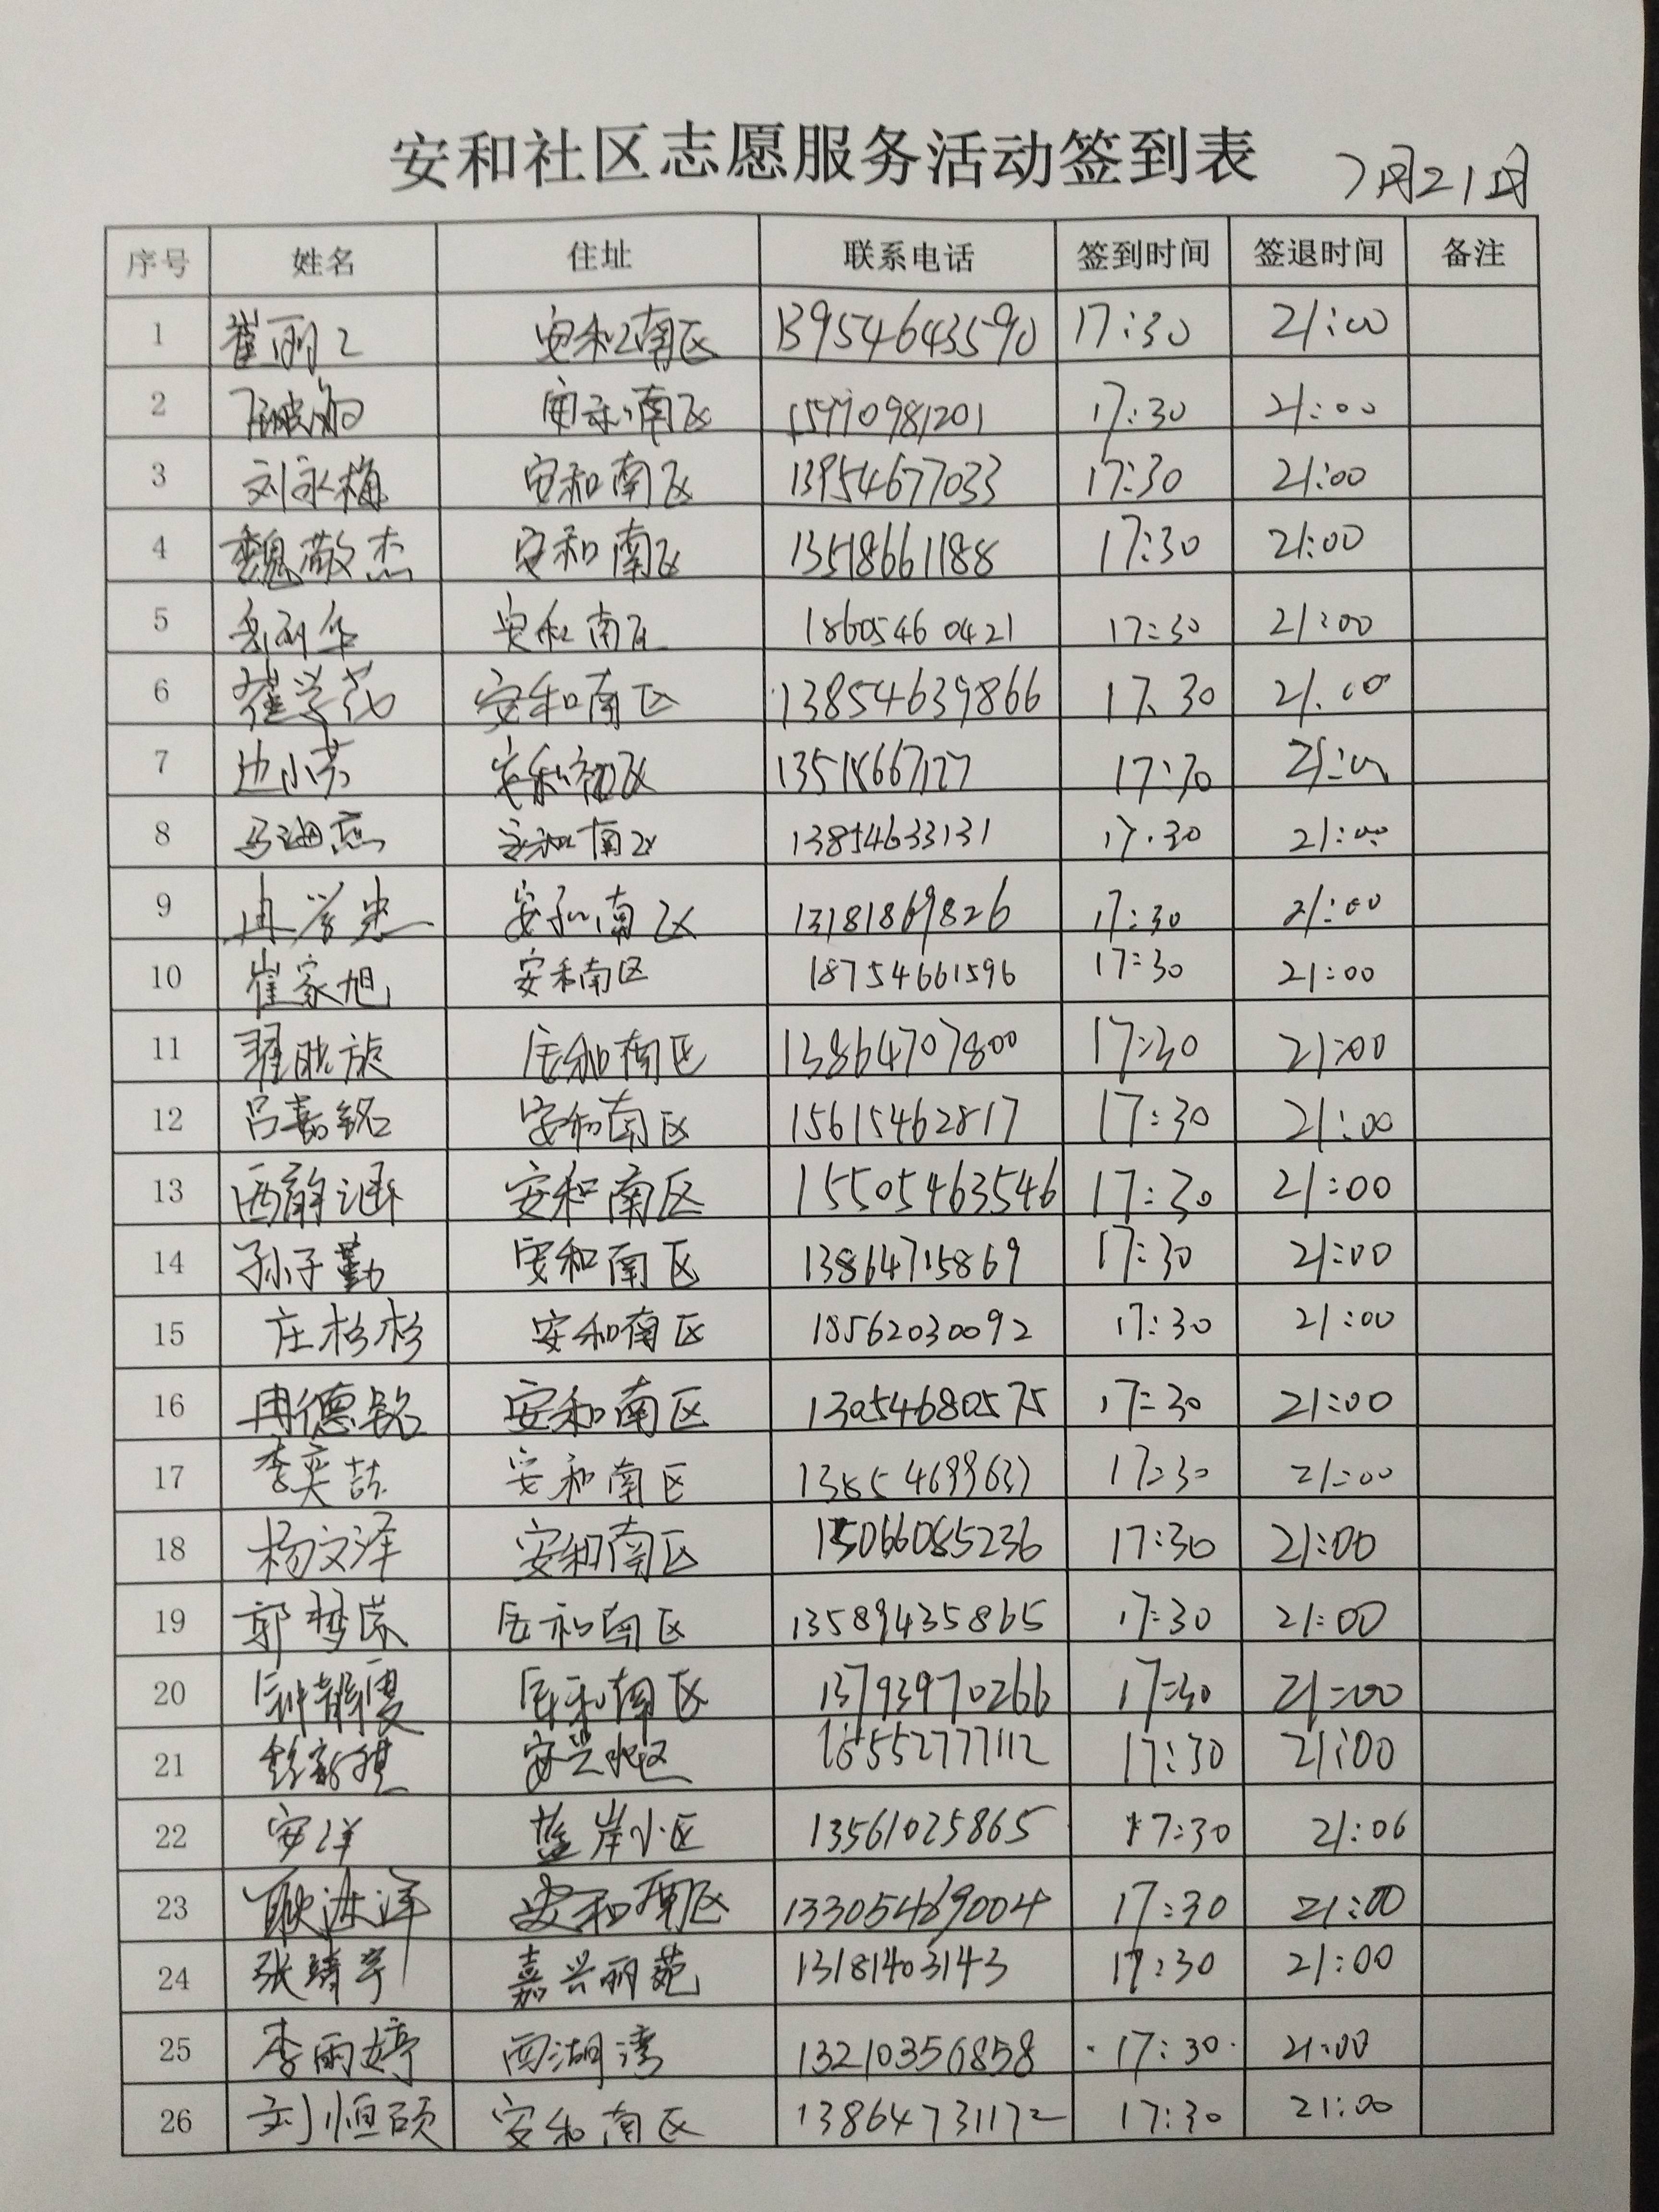 安和社区志愿服务活动签到表 7月21日
序号 姓名 住址 联系电话 签到时间 签退时间 备注
1 崔丽 安和南区 13954643590 17:30 21:00
2 安和南区 17:30 21:00
3 刘永梅 安和南区 13954677033 17:30 21:00
4 魏敬杰 安和南区 13518661188 17:30 21:00
5 安和南区 18605460421 17:30 21:00
6 安和南区 13854639866 17:30 21:00
7 边小芳 安和南区 13518667127 17:30 21:00
8 安和南区 13854633131 17:30 21:00
9 冉学忠 安和南区 13181869826 17:30 21:00
10 崔家旭 安和南区 18754661596 17:30 21:00
11 安和南区 13864707800 17:30 21:00
12 吕嘉铭 安和南区 15615462817 17:30 21:00
13 西静涵 安和南区 15505463546 17:30 21:00
14 孙子勤 安和南区 13864715869 17:30 21:00
15 庄杉杉 安和南区 18562030092 17:30 21:00
16 冉德铭 安和南区 13054680575 17:30 21:00
17 李奕喆 安和南区 17:30 21:00
18 杨文泽 安和南区 15066085236 17:30 21:00
19 郭梦 安和南区 13589435865 17:30 21:00
20 安和南区 13793970266 17:30 21:00
21 安兴 17:30 21:00
22 安洋 蓝岸小区 13561025865 17:30 21:00
23 耿海洋 安和南区 13305469004 17:30 21:00
24 张靖宇 嘉兴丽苑 13181403143 17:30 21:00
25 李雨婷 西湖湾 13210356858 17:30 21:00
26 刘恒硕 安和南区 13864731172 17:30 21:00